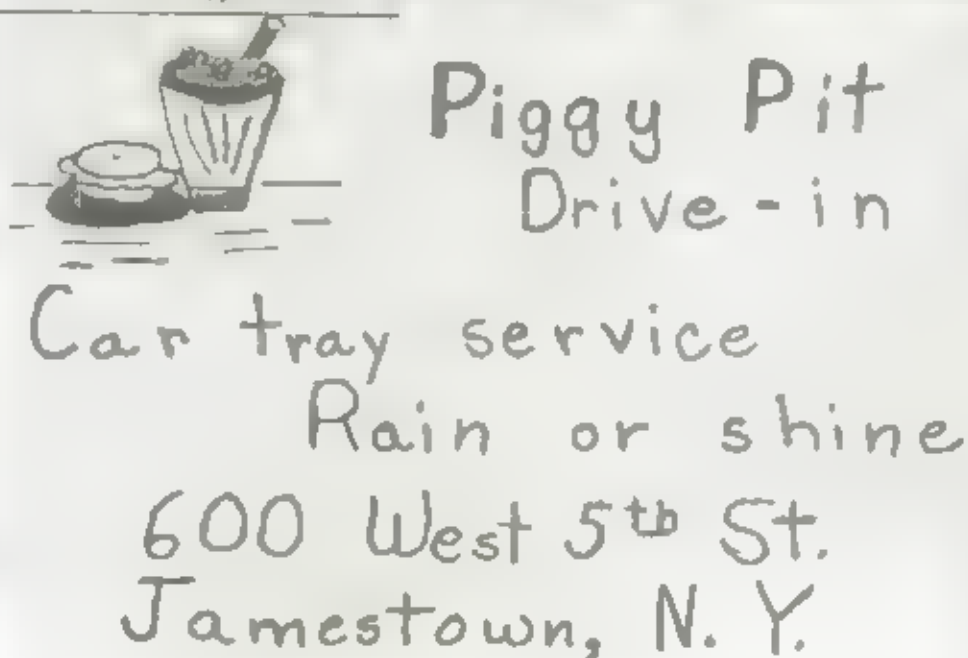 Piggy Pit
Drive-in
Car tray service
Rain or shine
600 West 5th St.
Jamestown, N.Y.